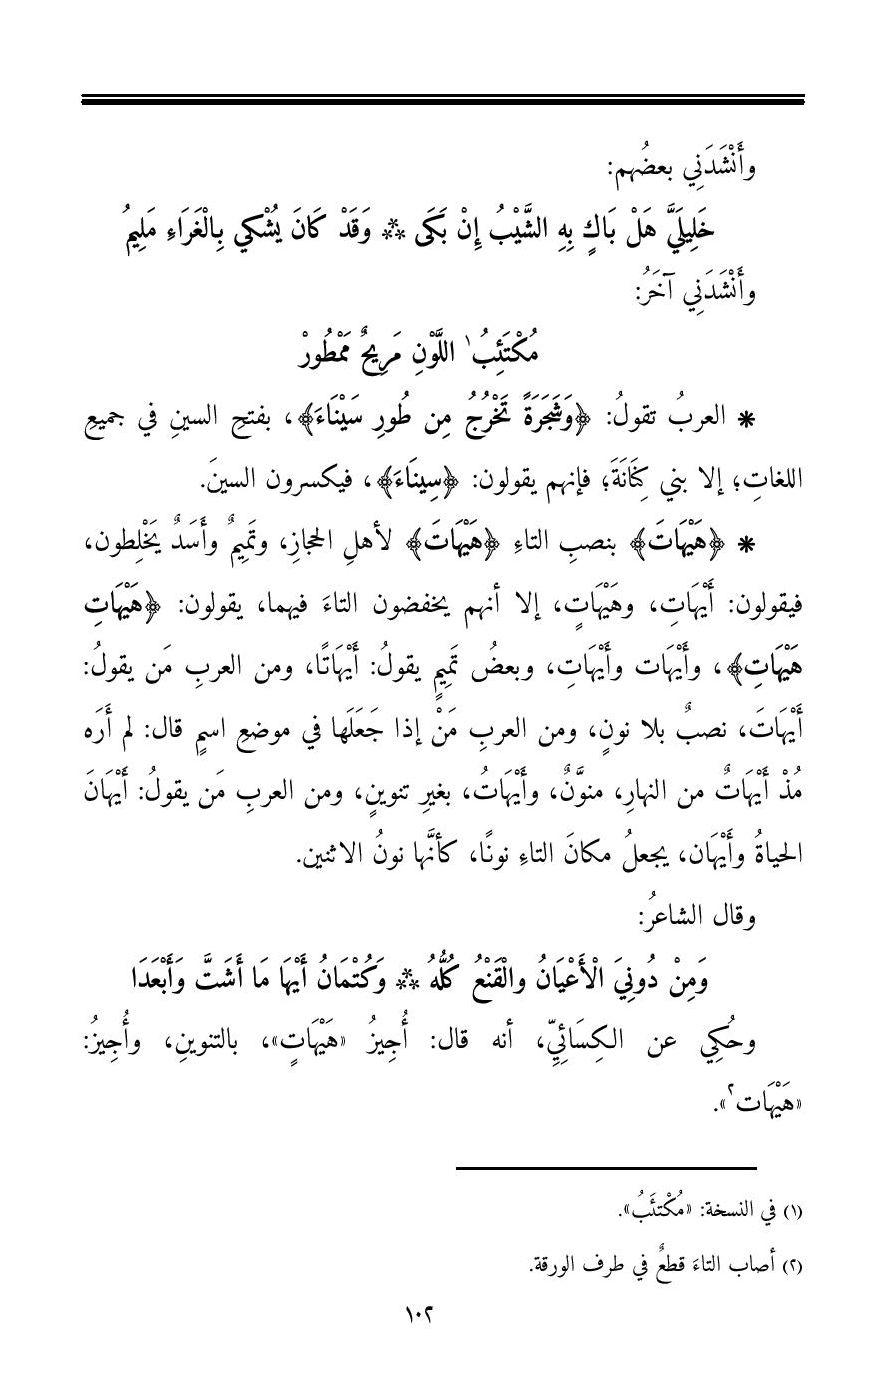 وأَنْشَدَنِي بعضُهم:
خَلِيلَيَّ هَلْ بَاكٍ بِهِ الشَّيْبُ إِنْ بَكَى ** وَقَدْ كَانَ يُشْكي بِالْعَزَاءِ مَلِيمُ
وأَنْشَدَنِي آخَرُ:
مُكْتَئِبُ١ اللَّوْنِ مَرِيحٌ مَمْطُورْ
* العربُ تقولُ: ﴿وَشَجَرَةً تَخْرُجُ مِن طُورِ سَيْنَاءَ﴾، بفتحِ السينِ في جميعِ
اللغاتِ؛ إلا بني كِنَانَةَ؛ فإنهم يقولون: ﴿سِينَاءَ﴾، فيكسرون السينَ.
* ﴿هَيْهَاتَ﴾ بنصبِ التاءِ ﴿هَيْهَاتَ﴾ لأهلِ الحجازِ، وتَمِيمٌ وأَسَدٌ يَخْلِطون،
فيقولون: أَيْهَاتِ، وهَيْهَاتٍ، إلا أنهم يخفضون التاءَ فيهما، يقولون: ﴿هَيْهَاتِ
هَيْهَاتِ﴾، وأَيْهَات وأَيْهَاتِ، وبعضُ تَمِيمٍ يقولُ: أَيْهَاتًا، ومن العربِ مَن يقولُ:
أَيْهَاتَ، نصبٌ بلا نونٍ، ومن العربِ مَنْ إذا جَعَلَها في موضعِ اسمٍ قال: لم أَرَه
مُذْ أَيْهَاتٌ من النهارِ، منوَّنٌ، وأَيْهَاتُ، بغيرِ تنوينٍ، ومن العربِ مَن يقولُ: أَيْهَانَ
الحياةُ وأَيْهَان، يجعلُ مكانَ التاءِ نونًا، كأنَّها نونُ الاثنين.
وقال الشاعرُ:
وَمِنْ دُونِيَ الْأَعْيَانُ والْقَنْعُ كُلُّهُ ** وَكُتْمَانُ أَيْهَا مَا أَشَتَّ وَأَبْعَدَا
وحُكِي عن الكِسَائِيِّ، أنه قال: أُجِيزُ «هَيْهَاتٍ»، بالتنوينِ، وأُجِيزُ:
«هَيْهَات٢».
(١) في النسخة: «مُكْتئَبُ».
(٢) أصاب التاءَ قطعٌ في طرف الورقة.
١٠٢